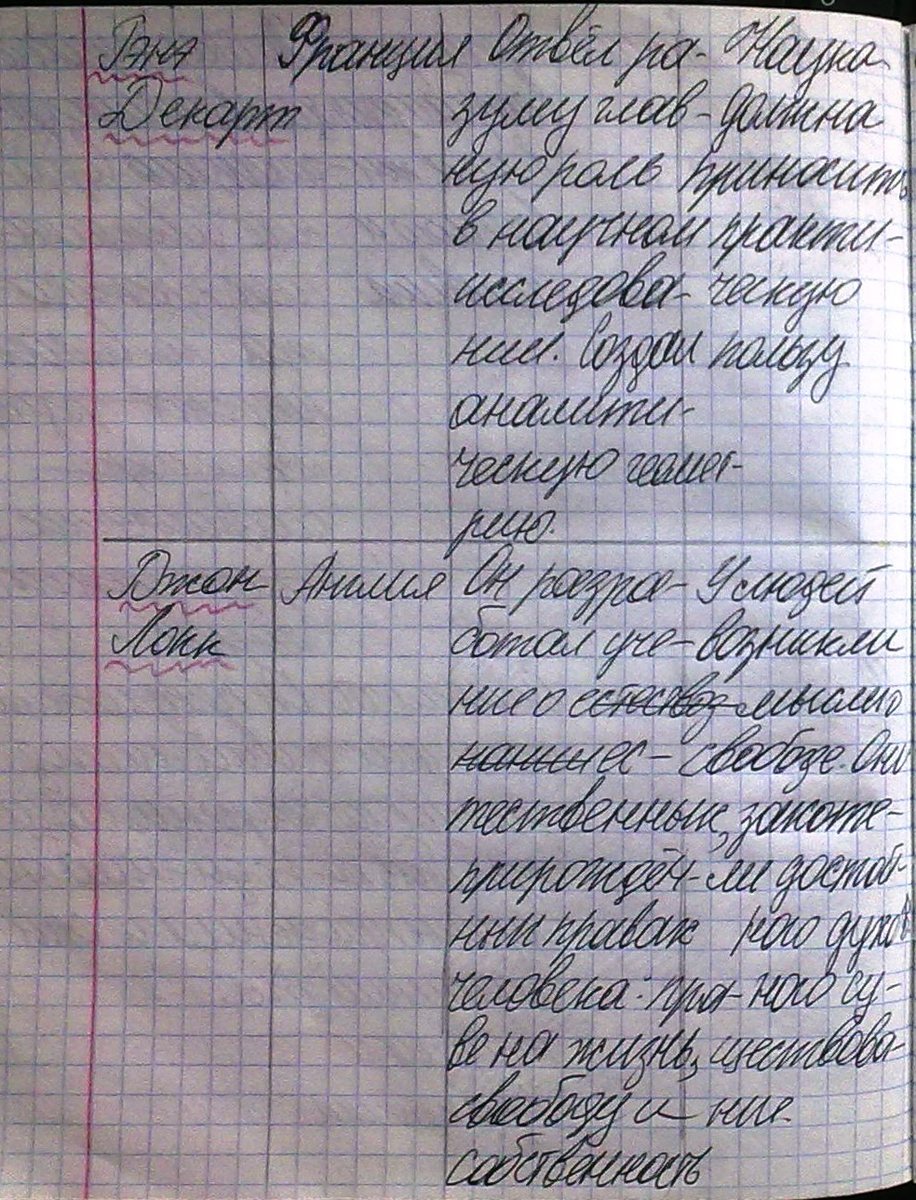 Рэнэ
Декарт
Франция
Отвёл ра-
зуму глав-
ную роль
в научном
исследова-
нии. Создал
аналити-
ческую геомет-
рию.
Наука
должна
приносить
практи-
ческую
пользу
Джон
Локк
Англия
Он разра-
ботал уче-
ние о
ес-
тественных,
прирождён-
ных правах
человека: пра-
ве на жизнь,
свободу и
собственность
У людей
возникли
мысли о
свободе. Они
захоте-
ли достой-
ного духов
ного су-
ществова-
ние.